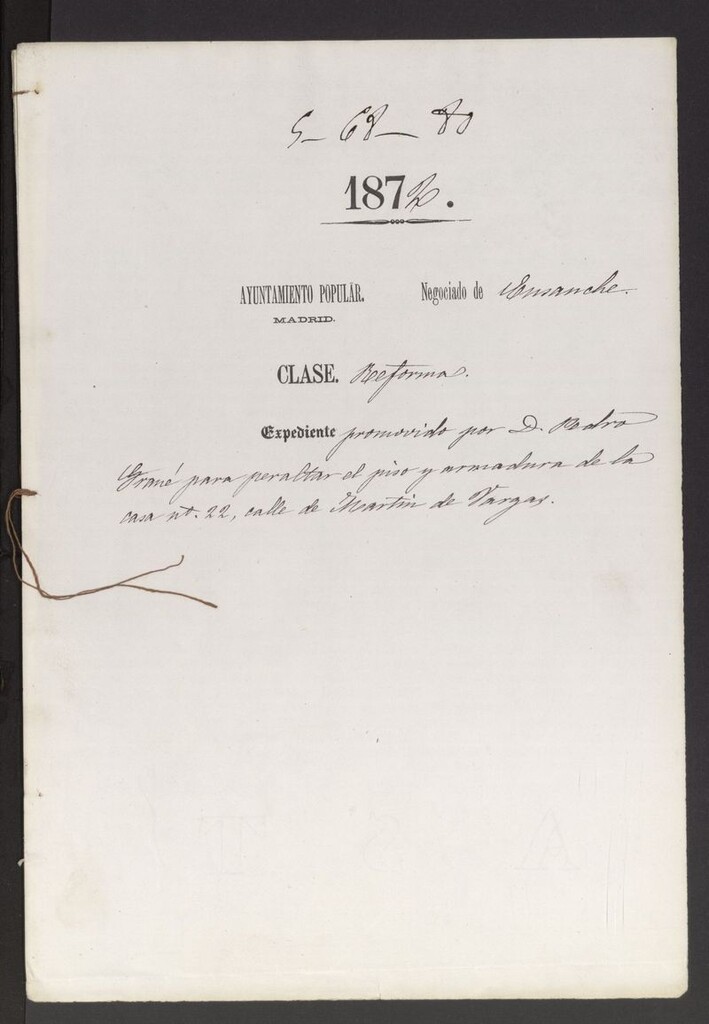 5-68-80
1872.
AYUNTAMIENTO POPULAR. Negociado de Ensanche.
MADRID.
CLASE. Reforma.
Expediente promovido por D. Pedro
para peraltar el piso y armadura de la
casa nº. 22, calle de Martin de Vargas.